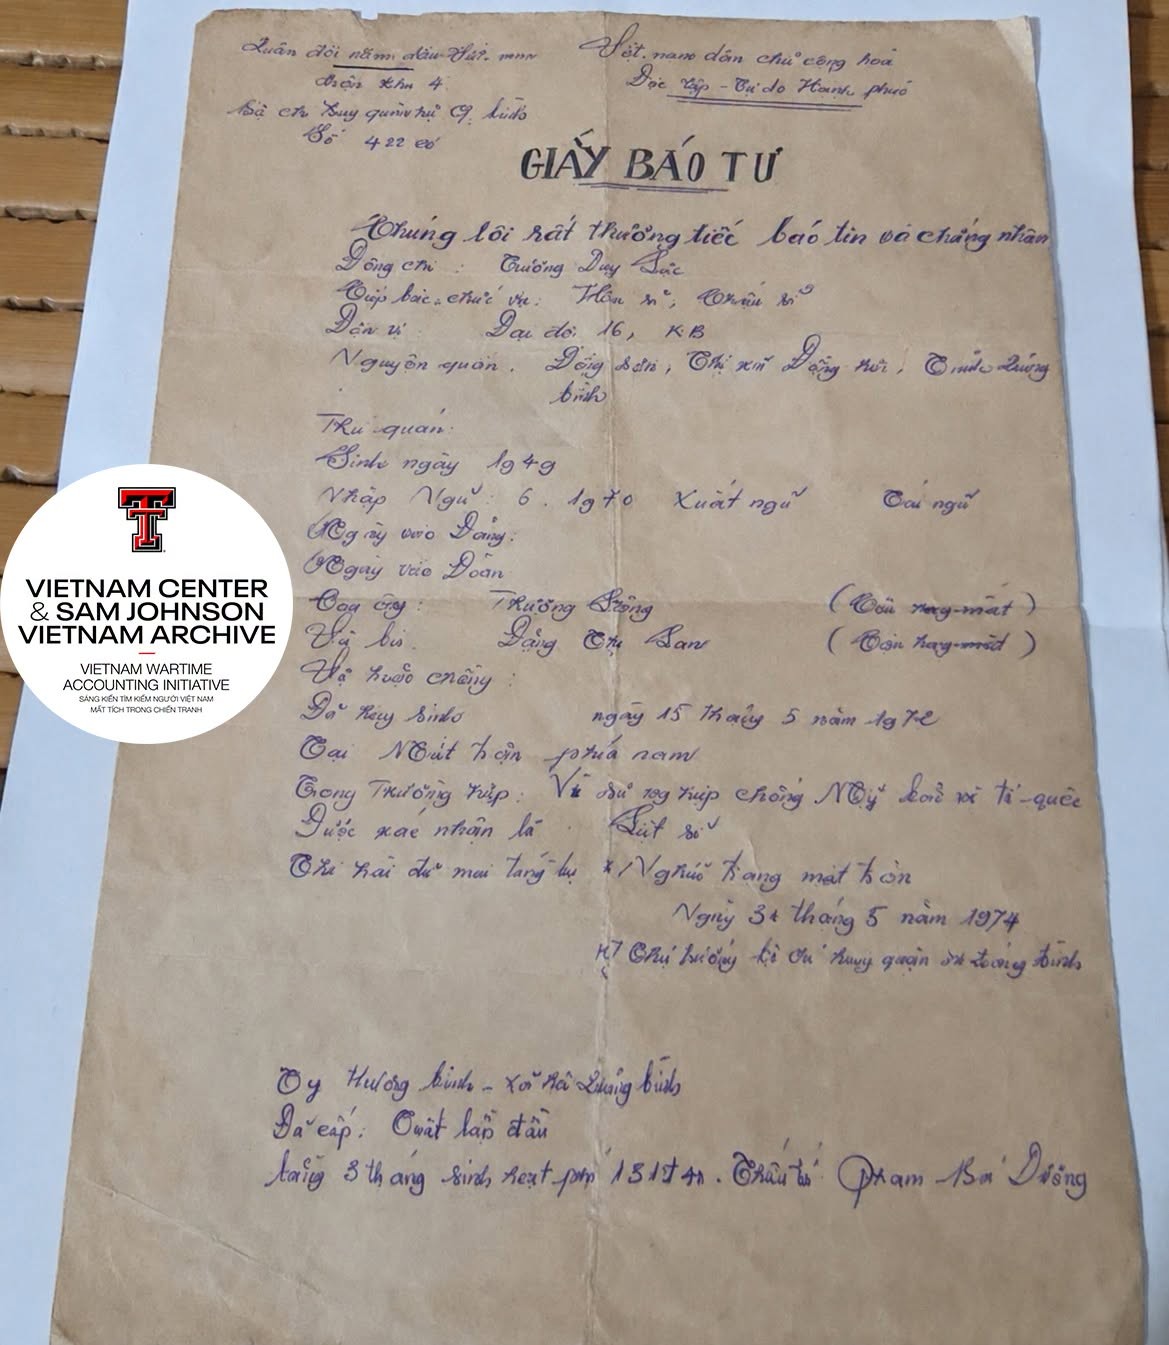 Quân đội nhân dân Việt nam
Quân khu 4
Bộ chỉ huy quân sự Q. bình
Số 422
Việt nam dân chủ cộng hoà
Độc lập - Tự do Hạnh phúc
GIẤY BÁO TỬ
Chúng tôi rất thương tiếc báo tin và chứng nhận
Đồng chí : Trương Duy
Cấp bậc chức vụ: Hạ sĩ, Chiến sĩ
Đơn vị : Đại đội 16, KB
Nguyên quán. Đồng Sơn, Thị xã Đồng hới, Tỉnh Quảng
bình
Trú quán:
Sinh ngày 1949
Nhập Ngũ: 6. 1970 Xuất ngũ Tái ngũ
Ngày vào Đảng:
Ngày vào Đoàn
Con ông: Trương (Còn hay mất)
Và bà. Đặng Thị Lan (Còn hay mất)
Vợ hoặc chồng:
Đã hy sinh ngày 15 tháng 5 năm 1972
Tại Mặt trận phía nam
Trong Trường hợp: Vì sự nghiệp chống Mỹ tổ-quốc
Được xác nhận là Liệt sĩ
Thi hài đã mai táng tại Nghĩa trang mặt trận
Ngày 31 tháng 5 năm 1974
Thủ trưởng bộ chỉ huy quân sự Quảng bình
Ty Thương binh - xã hội Quảng bình
Đã cấp: lần đầu
bằng 3 tháng sinh hoạt phí Phạm Bá Dường
VIETNAM CENTER
& SAM JOHNSON
VIETNAM ARCHIVE
VIETNAM WARTIME
ACCOUNTING INITIATIVE
SÁNG KIẾN TÌM KIẾM NGƯỜI VIỆT NAM
MẤT TÍCH TRONG CHIẾN TRANH